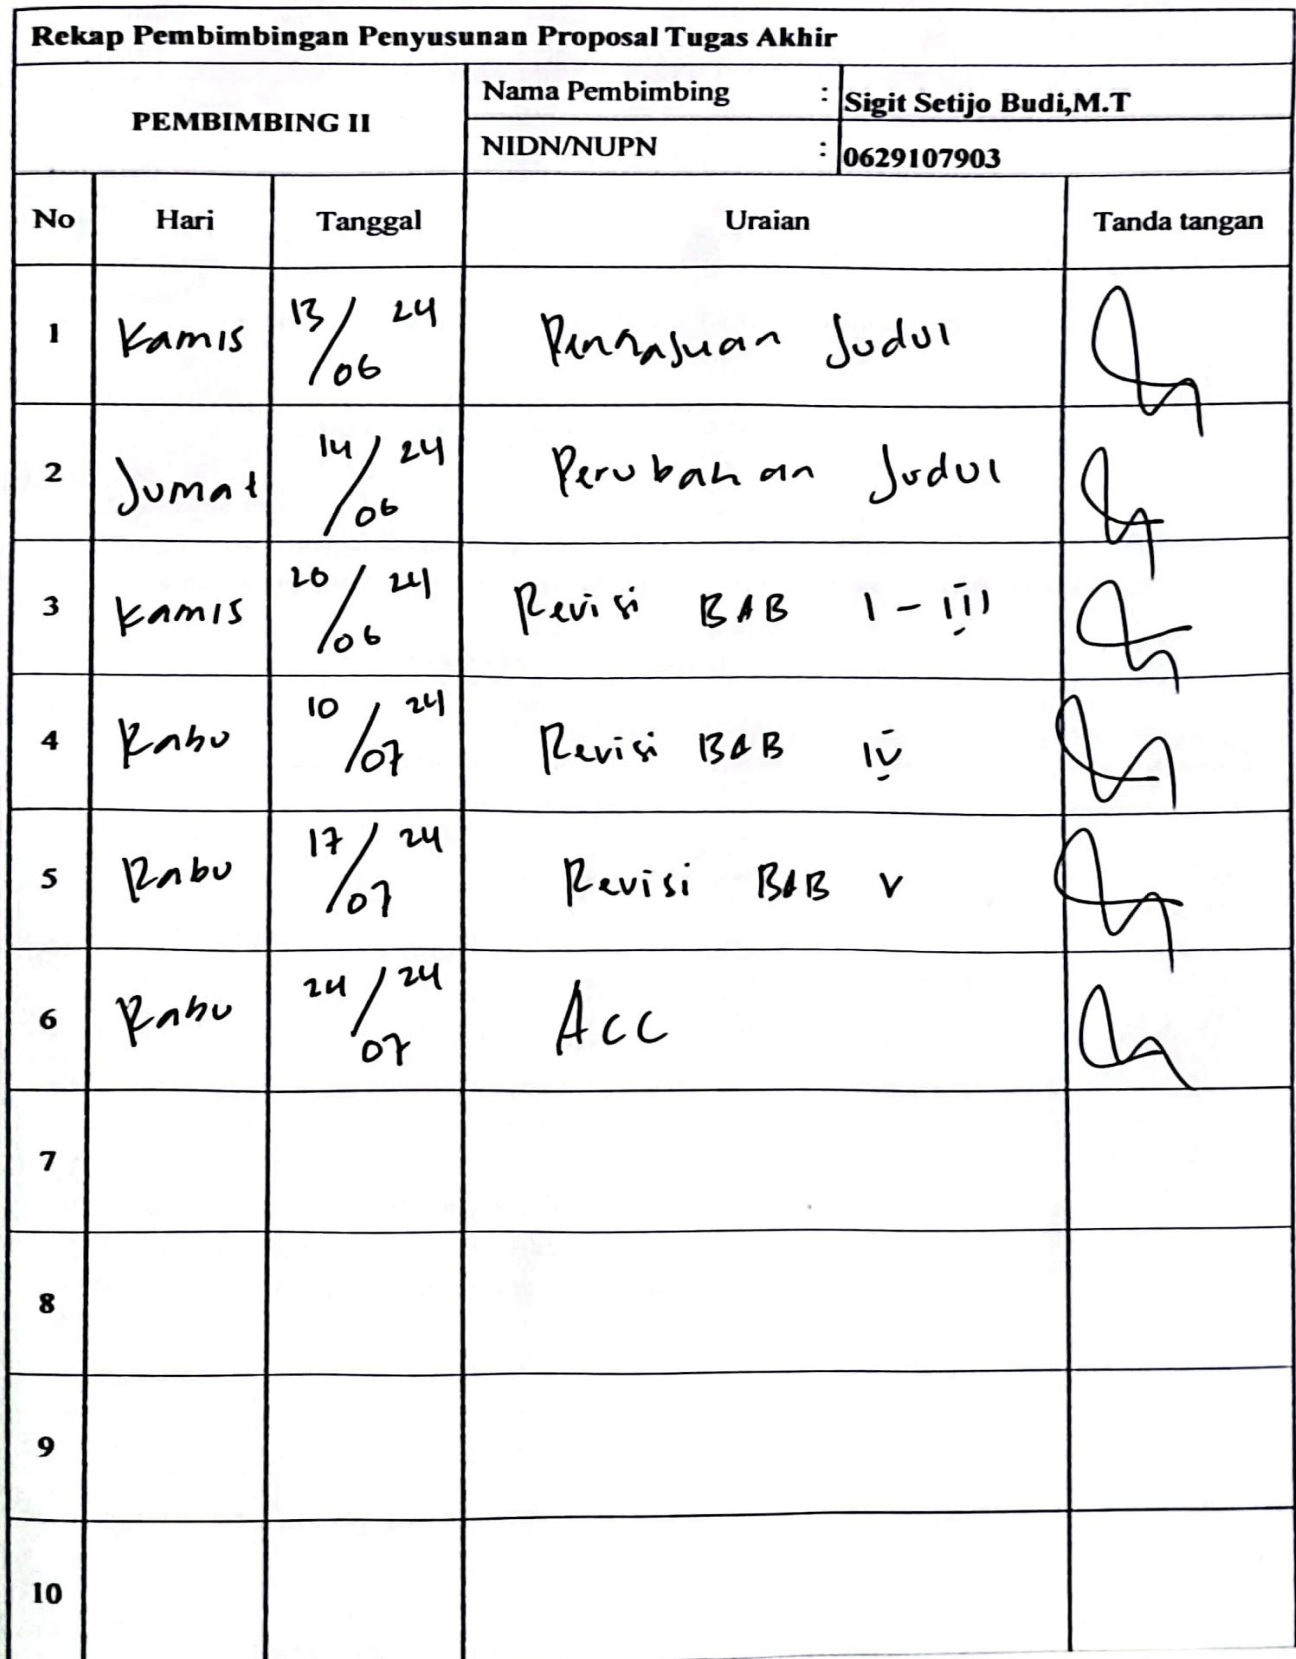 Rekap Pembimbingan Penyusunan Proposal Tugas Akhir
PEMBIMBING II
Nama Pembimbing : Sigit Setijo Budi,M.T
NIDN/NUPN : 0629107903
No Hari Tanggal Uraian Tanda tangan
1 Kamis 13/06 24 Pengajuan Judul
2 Jumat 14/06 24 Perubahan Judul
3 Kamis 20/06 24 Revisi BAB I - III
4 Rabu 10/07 24 Revisi BAB IV
5 Rabu 17/07 24 Revisi BAB V
6 Rabu 24/07 24 Acc
7
8
9
10